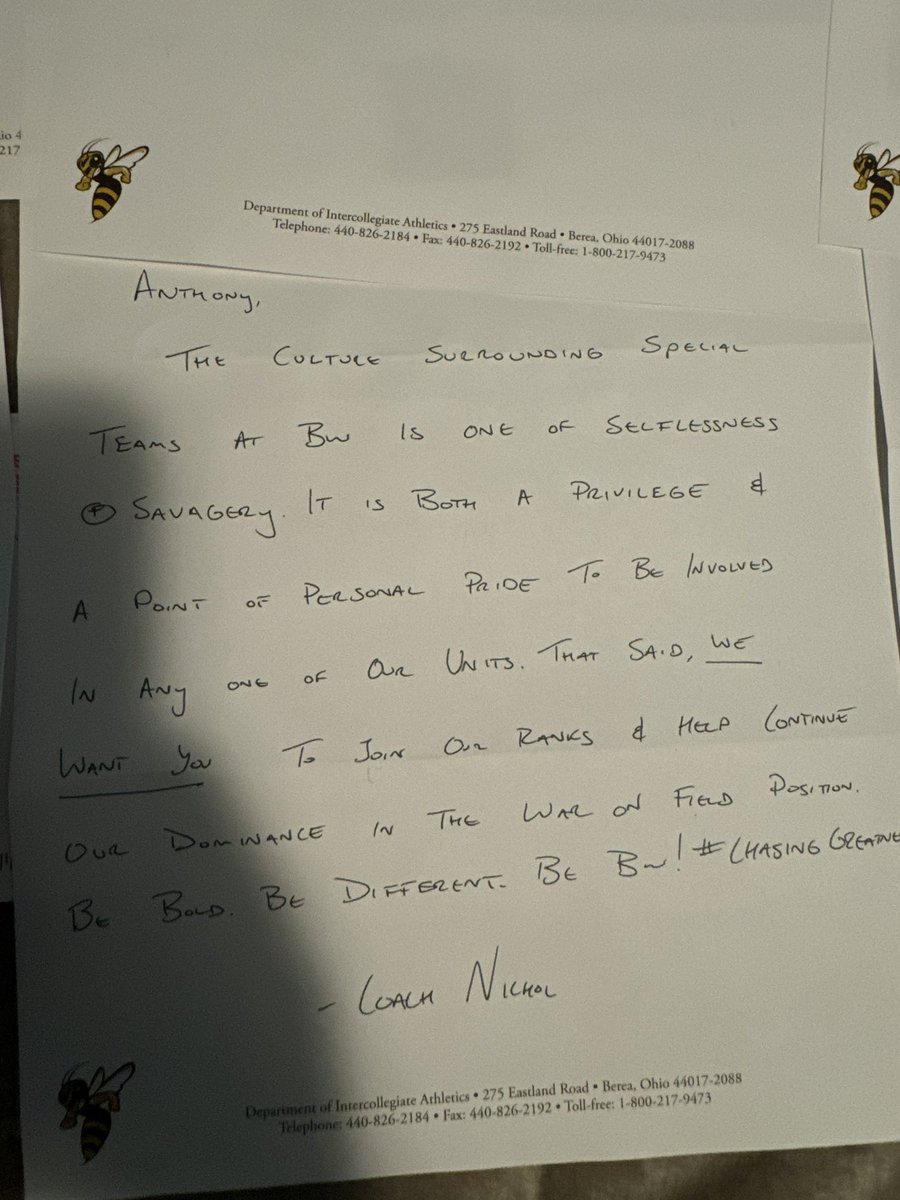 io 4
217
Department of Intercollegiate Athletics • 275 Eastland Road • Berea, Ohio 44017-2088
Telephone: 440-826-2184 • Fax: 440-826-2192 • Toll-free: 1-800-217-9473
ANTHONY,
THE CULTURE SURROUNDING SPECIAL
TEAMS AT BW IS ONE OF SELFLESSNESS
⊕ SAVAGERY. IT IS BOTH A PRIVILEGE &
A POINT OF PERSONAL PRIDE TO BE INVOLVED
IN ANY ONE OF OUR UNITS. THAT SAID, WE
WANT YOU TO JOIN OUR RANKS & HELP CONTINUE
OUR DOMINANCE IN THE WAR ON FIELD POSITION.
BE BOLD. BE DIFFERENT. BE BW! #CHASING GREATNE
- COACH NICHOL
Department of Intercollegiate Athletics • 275 Eastland Road • Berea, Ohio 44017-2088
Telephone: 440-826-2184 • Fax: 440-826-2192 • Toll-free: 1-800-217-9473